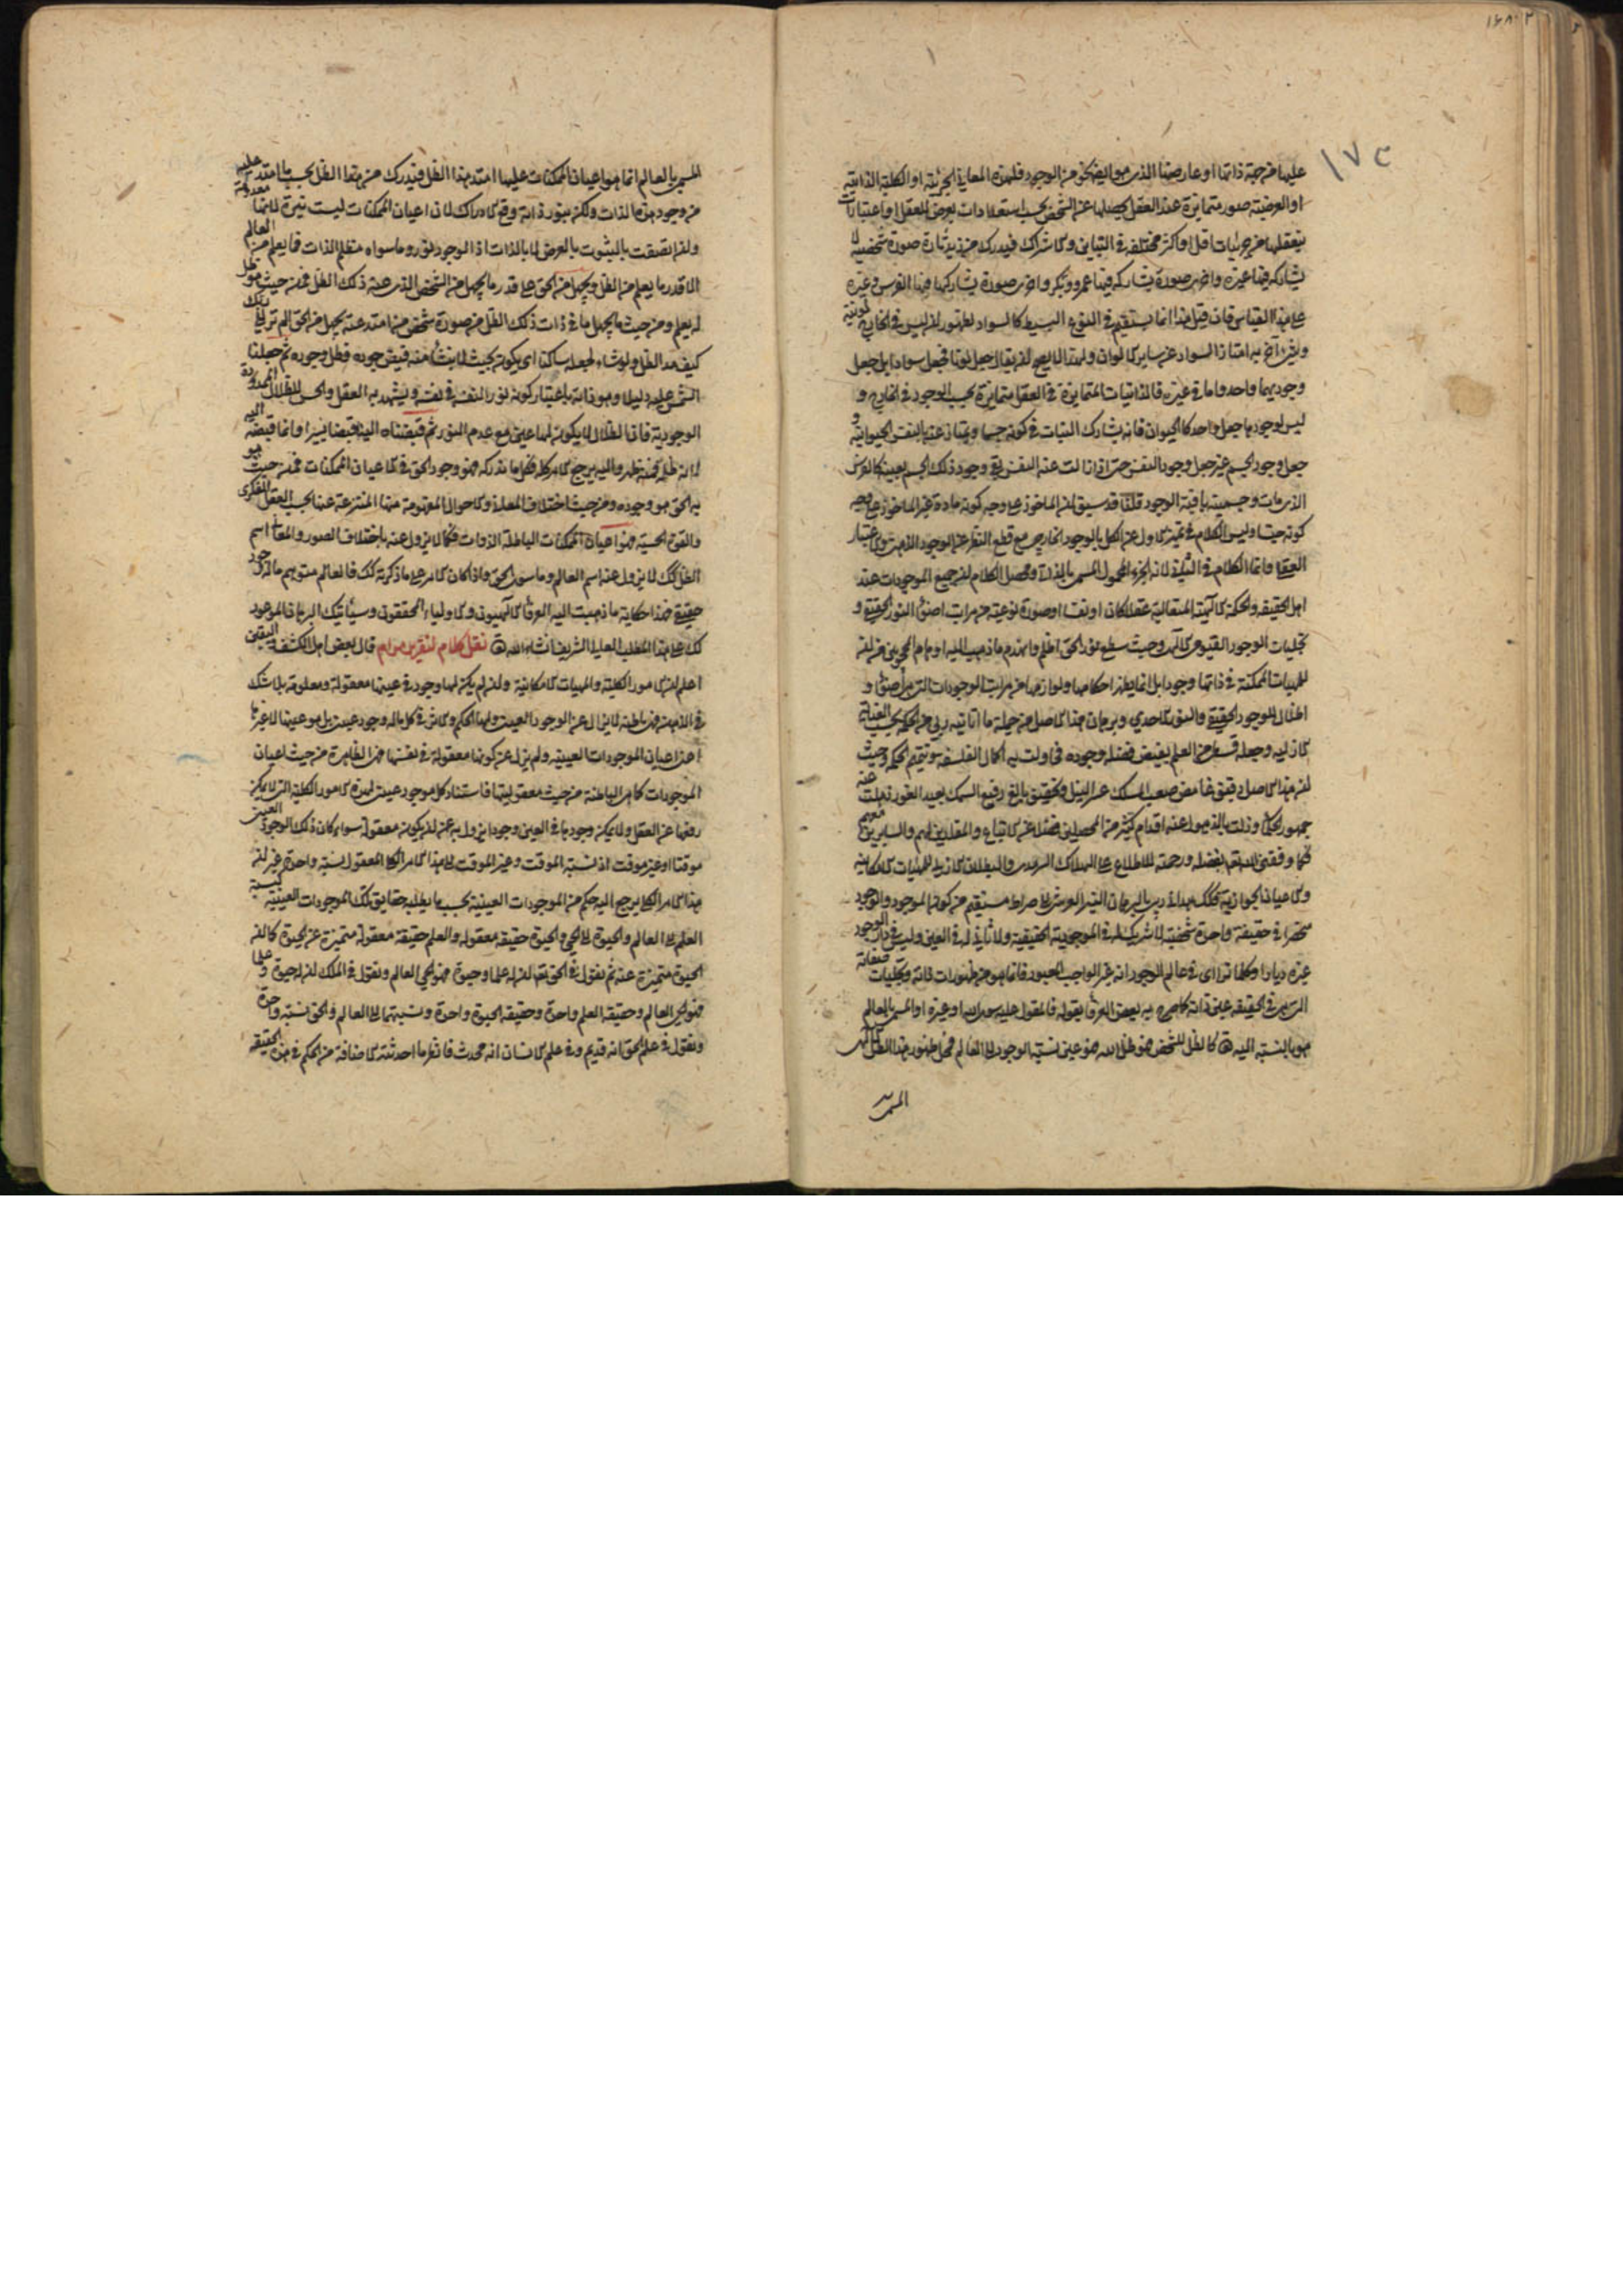 ١٧٣
عليها من جهة ذاتها او عارضها الذي هو ايضا نحو من الوجود فلهذه المعاني الجزئية او الكلية الذاتية
او العرضية صور متمايزة عند العقل يحصلها عن الشخص بحسب استعدادات يعرض للعقل او اعتبارات
يتعقلها من جزئيات اقل او اكثر مختلفه في التباين والاشتراك فيدرك من زيد تارة صورة شخصية لا
يشاركه فيها غيره واخرى صورة يشاركه فيها عمرو وبكر واخرى صورة يشاركها فيها الفرس وغيره
على هذا القياس فان قيل هذا انما يستقيم في النوع البسيط كالسواد لظهور ان ليس في الخارج لونية
وشيء آخر به امتاز السواد عن ساير الالوان ولهذا لا يصح ان يقال جعل لونا فجعل سوادا بل جعل
وجوديهما واحد واما في غيره فالذاتيات المتمايزة في العقل متمايزة بحسب الوجود في الخارج و
ليس لوجودها جعل واحد كالحيوان فانه يشارك النبات في كونه جسما ويمتاز عنه بالنفس الحيوانية و
جعل وجود الجسم غير جعل وجود النفس حتى اذا زالت عنه النفس بقي وجود ذلك الجسم بعينه كالفرس
الذي مات وجسميته باقية الوجود قلنا قد سبق ان الماخوذ على وجه كونه مادة غير الماخوذ على وجه
كونه جنسا وليس الكلام في تميز الاول عن الكل بالوجود الخارجي مع قطع النظر عن الوجود الذهني والاعتبار
العقلي وانما الكلام في الثاني لانه الجزء المحمول المسمى بالذاتي ومحصل الكلام ان جميع الموجودات عند
اهل الحقيقه والحكمة الالهية المتعالية عقلا كان او نفسا او صورة نوعية من مراتب اضواء النور الحقيقي و
تجليات الوجود القيومي الالهي وحيث سطع نور الحق اظلم وانهدم ما ذهب اليه اوهام المحجوبين من ان
للمهيات الممكنة في ذاتها وجودا بل انما يظهر احكامها ولوازمها من مراتب الوجودات التي هي اضواء و
اظلال للوجود الحقيقي والنور الاحدي وبرهان هذا الاصل من جملة ما آتانيه ربي من الحكمة بحسب العناية
الازلية وجعله قسطي من العلم بفيض فضله وجوده فحاولت به اكمال الفلسفه وتتميم الحكمه وحيث
ان هذا الاصل دقيق غامض صعب المسلك عسر النيل وتحقيق بالغ رفيع السمك بعيد الغور ذهلت عنه
جمهور الحكماء وزلت بالذهول عنه اقدام كثير من المحصلين فضلا عن الاتباع والمقلدين لهم والسايرين معهم
فكما وفقني الله تعالى بفضله ورحمته للاطلاع على الهلاك السرمدي والبطلان الازلي للمهيات الامكانيه
والاعيان الجوازية فكذلك هداني ربي بالبرهان النير العرشي الى صراط مستقيم من كون الموجود والوجود
منحصرا في حقيقة واحدة شخصية لا شريك له في الموجودية الحقيقية ولا ثاني له في العين وليس في دار الوجود
غيره ديار وكلما تراءى في عالم الوجود انه غير الواجب المعبود فانما هو من ظهورات ذاته وتجليات صفاته
التي هي في الحقيقه عين ذاته كما صرح به بعض العرفاء بقوله فالمقول عليه سوى الله او غيره او المسمى بالعالم
هو بالنسبة اليه تعالى كالظل للشخص فهو ظل الله فهو عين نسبة الوجود الى العالم فمحل ظهور هذا الظل الالهي
المسمى
المسمى بالعالم انما هو اعيان الممكنات عليها امتد هذا الظل فيدرك من هذا الظل بحسب ما امتد عليه
من وجود هذه الذات ولكن بنور ذاته وقع الادراك لان اعيان الممكنات ليست نيرة لانها معدومة
وان اتصفت بالثبوت بالعرض لا بالذات اذ الوجود نور وما سواه مظلم الذات فما يعلم من العالم
الا قدر ما يعلم من الظل ويجهل من الحق على قدر ما يجهل من الشخص الذي عنه ذلك الظل فمن حيث هو ظل
له يعلم ومن حيث ما يجهل ما في ذات ذلك الظل من صورة شخص من امتد عنه يجهل من الحق الم تر الى ربك
كيف مد الظل ولو شاء لجعله ساكنا اي يكون بحيث لا ينشأ منه فيض جوده وظل وجوده ثم جعلنا
الشمس عليه دليلا وهو ذاته باعتبار كونه نورا لنفسه في نفسه ويشهد به العقل والحس للظلال الممدودة
الوجودية فان الظلال لا يكون لها عين مع عدم النور ثم قبضناه الينا قبضا يسيرا وانما قبضه اليه
لانه ظله فمنه ظهر واليه يرجع الامر كله فكل ما ندركه فهو وجود الحق في اعيان الممكنات فمن حيث هو
به الحق هو وجوده ومن حيث اختلاف المعاني والاحوال المفهومة منها المنتزعة عنها بحسب العقل الفكري
والقوة الحسية فهو اعيان الممكنات الباطلة الذوات فكما لا يزول عنه باختلاف الصور والمعاني اسم
الظل كذلك لا يزول عنه اسم العالم وما سوى الحق واذا كان الامر على ما ذكرته لك فالعالم متوهم ما له وجود
حقيقي فهذا حكاية ما ذهبت اليه العرفاء الالهيون والاولياء المحققون وسيأتيك البرهان الموعود
لك على هذا المطلب العالي الشريف ان شاء الله تعالى نقل كلام لتقريب مرام قال بعض اهل الكشف واليقين
اعلم ان الامور الكلية والمهيات الامكانية وان لم يكن لها وجود في عينها فهي معقولة ومعلومة بلا شك
في الذهن فهي باطنة لا يزال عن الوجود العيني ولها الحكم والاثر في كل ماله وجود عيني بل هو عينها لا غيرها
اعني اعيان الموجودات العينية ولم يزل عن كونها معقولة في نفسها فهي الظاهرة من حيث اعيان
الموجودات كما هي الباطنة من حيث معقوليتها فاستناد كل موجود عيني لهذه الامور الكلية التي لا يمكن
رفعها عن العقل ولا يمكن وجودها في العين وجودا يزول به عن ان يكون معقولة سواء كان ذلك الوجود العيني
موقتا او غير موقت اذ نسبة الموقت وغير الموقت الى هذا الامر الكلي المعقول نسبة واحدة غير ان
هذا الامر الكلي يرجع اليه حكم من الموجودات العينية بحسب ما يطلبه حقايق تلك الموجودات العينية كنسبة
العلم الى العالم والحيوة الى الحي والحيوة حقيقة معقولة والعلم حقيقة معقولة متميزة عن الحيوة كما ان
الحيوة متميزة عنه ثم نقول في الحق تعالى ان له علما وحيوة فهو الحي العالم ونقول في الملك ان له حيوة وعلما
فهو الحي العالم وحقيقة العلم واحدة وحقيقة الحيوة واحدة ونسبتهما الى العالم والحي نسبة واحدة
ونقول في علم الحق انه قديم وفي علم الانسان انه محدث فانظر ما احدثته الاضافة من الحكم في هذه الحقيقه